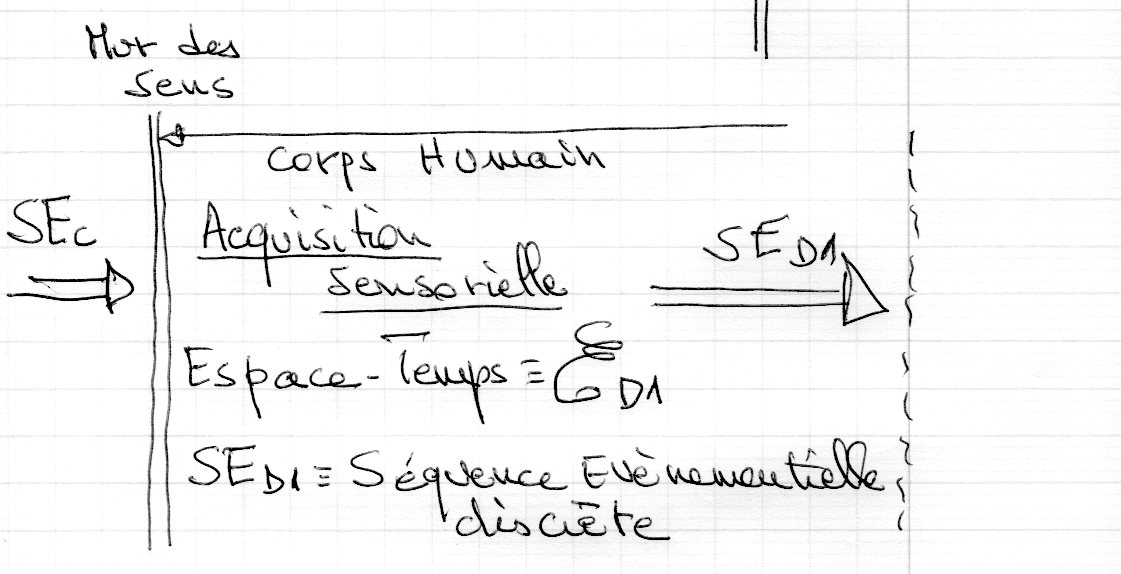 Mur des
sens
Corps Humain
SEc
Acquisition
sensorielle
SED1
Espace-Temps ≡ ℰD1
SED1 ≡ Séquence Evènementielle
discrète